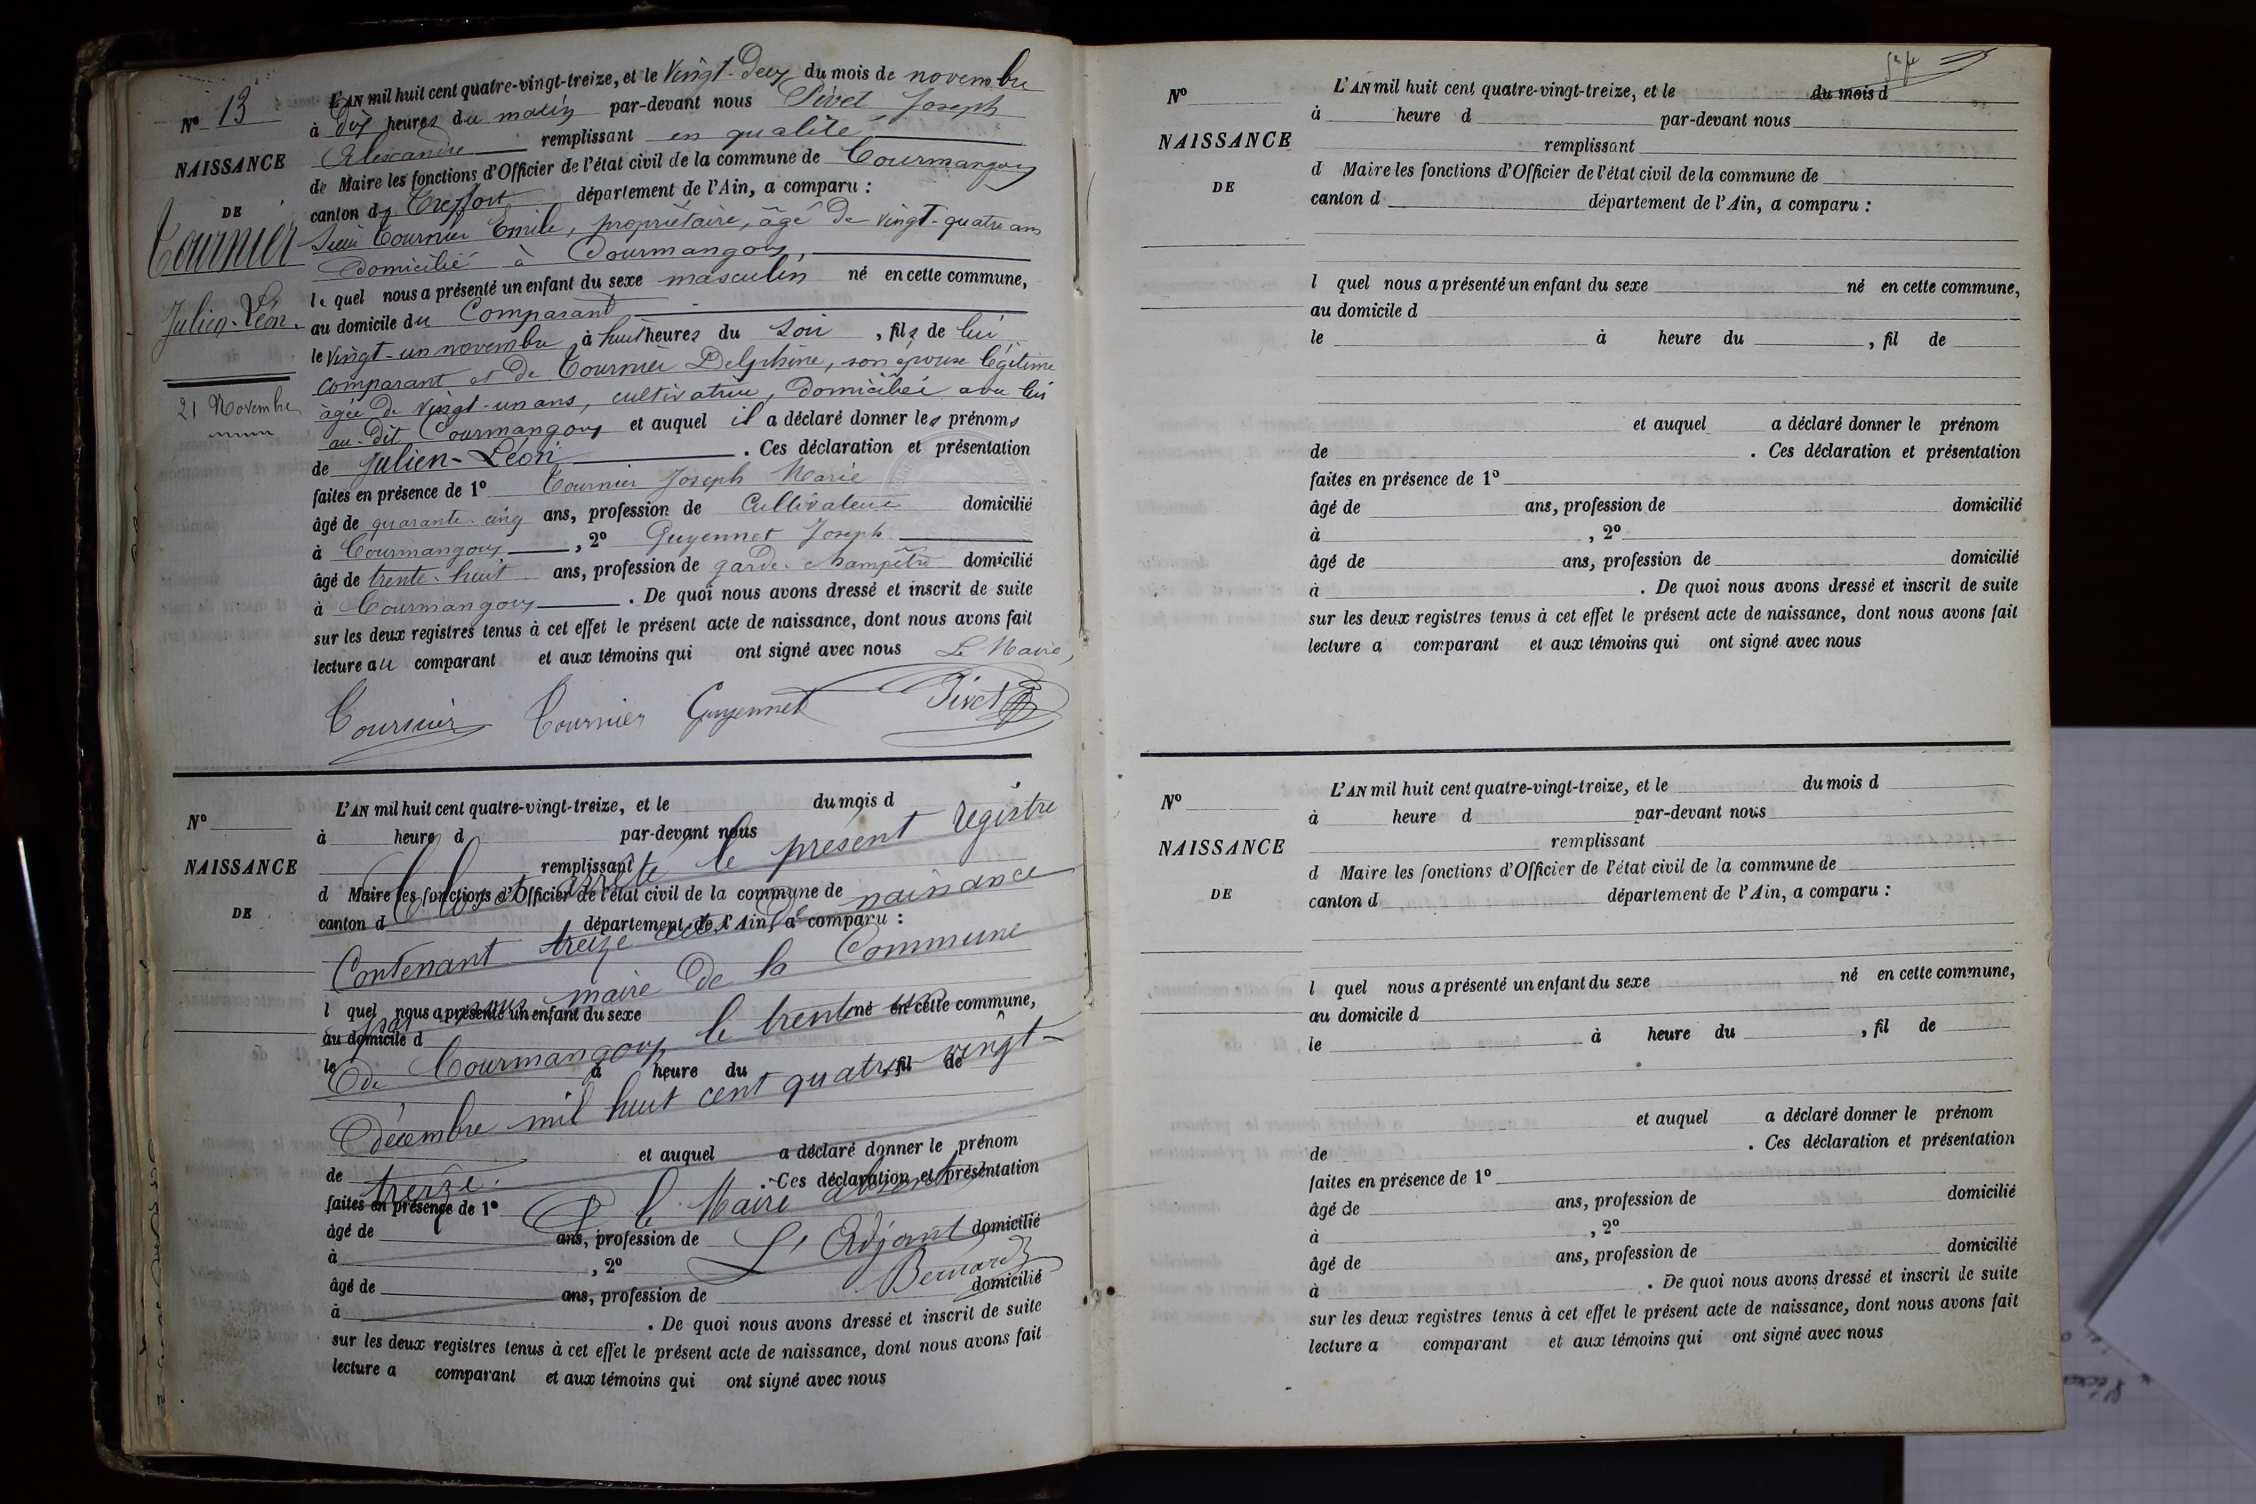 N° 13
NAISSANCE
DE
Tournier
Julien-Léon.
21 Novembre
L'AN mil huit cent quatre-vingt-treize, et le vingt-deux du mois de novembre
à dix heures du matin par-devant nous Pivet Joseph
Alexandre remplissant en qualité
de Maire les fonctions d'Officier de l'état civil de la commune de Courmangoux
canton de Treffort département de l'Ain, a comparu :
Sieur Tournier Emile, propriétaire, âgé de vingt-quatre ans
domicilié à Courmangoux
le quel nous a présenté un enfant du sexe masculin né en cette commune,
au domicile du Comparant
le vingt-un novembre à huit heures du soir, fils de lui
comparant et de Tournier Delphine, son épouse légitime
âgée de vingt-un ans, cultivatrice, domiciliée avec lui
au-dit Courmangoux et auquel il a déclaré donner les prénoms
de Julien-Léon. Ces déclaration et présentation
faites en présence de 1° Tournier Joseph Marie
âgé de quarante-cinq ans, profession de Cultivateur domicilié
à Courmangoux, 2° Guyennet Joseph
âgé de trente-huit ans, profession de garde-champêtre domicilié
à Courmangoux. De quoi nous avons dressé et inscrit de suite
sur les deux registres tenus à cet effet le présent acte de naissance, dont nous avons fait
lecture au comparant et aux témoins qui ont signé avec nous Le Maire,
Tournier Tournier Guyennet Pivet
N°
NAISSANCE
DE
L'AN mil huit cent quatre-vingt-treize, et le du mois d
à heure d par-devant nous
remplissant
d Maire les fonctions d'Officier de l'état civil de la commune de
canton d département de l'Ain, a comparu :
l quel nous a présenté un enfant du sexe né en cette commune,
au domicile d
le à heure du , fil de
et auquel a déclaré donner le prénom
de . Ces déclaration et présentation
faites en présence de 1°
âgé de ans, profession de domicilié
à , 2°
âgé de ans, profession de domicilié
à . De quoi nous avons dressé et inscrit de suite
sur les deux registres tenus à cet effet le présent acte de naissance, dont nous avons fait
lecture a comparant et aux témoins qui ont signé avec nous
Clos et arrêté le présent registre
Contenant treize actes de naissance
par nous maire de la Commune
de Courmangoux le trente un
Décembre mil huit cent quatre vingt-
treize.
P. le Maire absent
L'Adjoint
Bernard
N°
NAISSANCE
DE
L'AN mil huit cent quatre-vingt-treize, et le du mois d
à heure d par-devant nous
remplissant
d Maire les fonctions d'Officier de l'état civil de la commune de
canton d département de l'Ain, a comparu :
l quel nous a présenté un enfant du sexe né en cette commune,
au domicile d
le à heure du , fil de
et auquel a déclaré donner le prénom
de . Ces déclaration et présentation
faites en présence de 1°
âgé de ans, profession de domicilié
à , 2°
âgé de ans, profession de domicilié
à . De quoi nous avons dressé et inscrit de suite
sur les deux registres tenus à cet effet le présent acte de naissance, dont nous avons fait
lecture a comparant et aux témoins qui ont signé avec nous
N°
NAISSANCE
DE
L'AN mil huit cent quatre-vingt-treize, et le du mois d
à heure d par-devant nous
remplissant
d Maire les fonctions d'Officier de l'état civil de la commune de
canton d département de l'Ain, a comparu :
l quel nous a présenté un enfant du sexe né en cette commune,
au domicile d
le à heure du , fil de
et auquel a déclaré donner le prénom
de . Ces déclaration et présentation
faites en présence de 1°
âgé de ans, profession de domicilié
à , 2°
âgé de ans, profession de domicilié
à . De quoi nous avons dressé et inscrit de suite
sur les deux registres tenus à cet effet le présent acte de naissance, dont nous avons fait
lecture a comparant et aux témoins qui ont signé avec nous